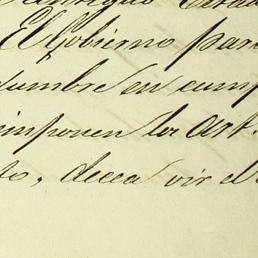 El Gobierno para
dumbre en cump
imponen los art.
to, decea oir el